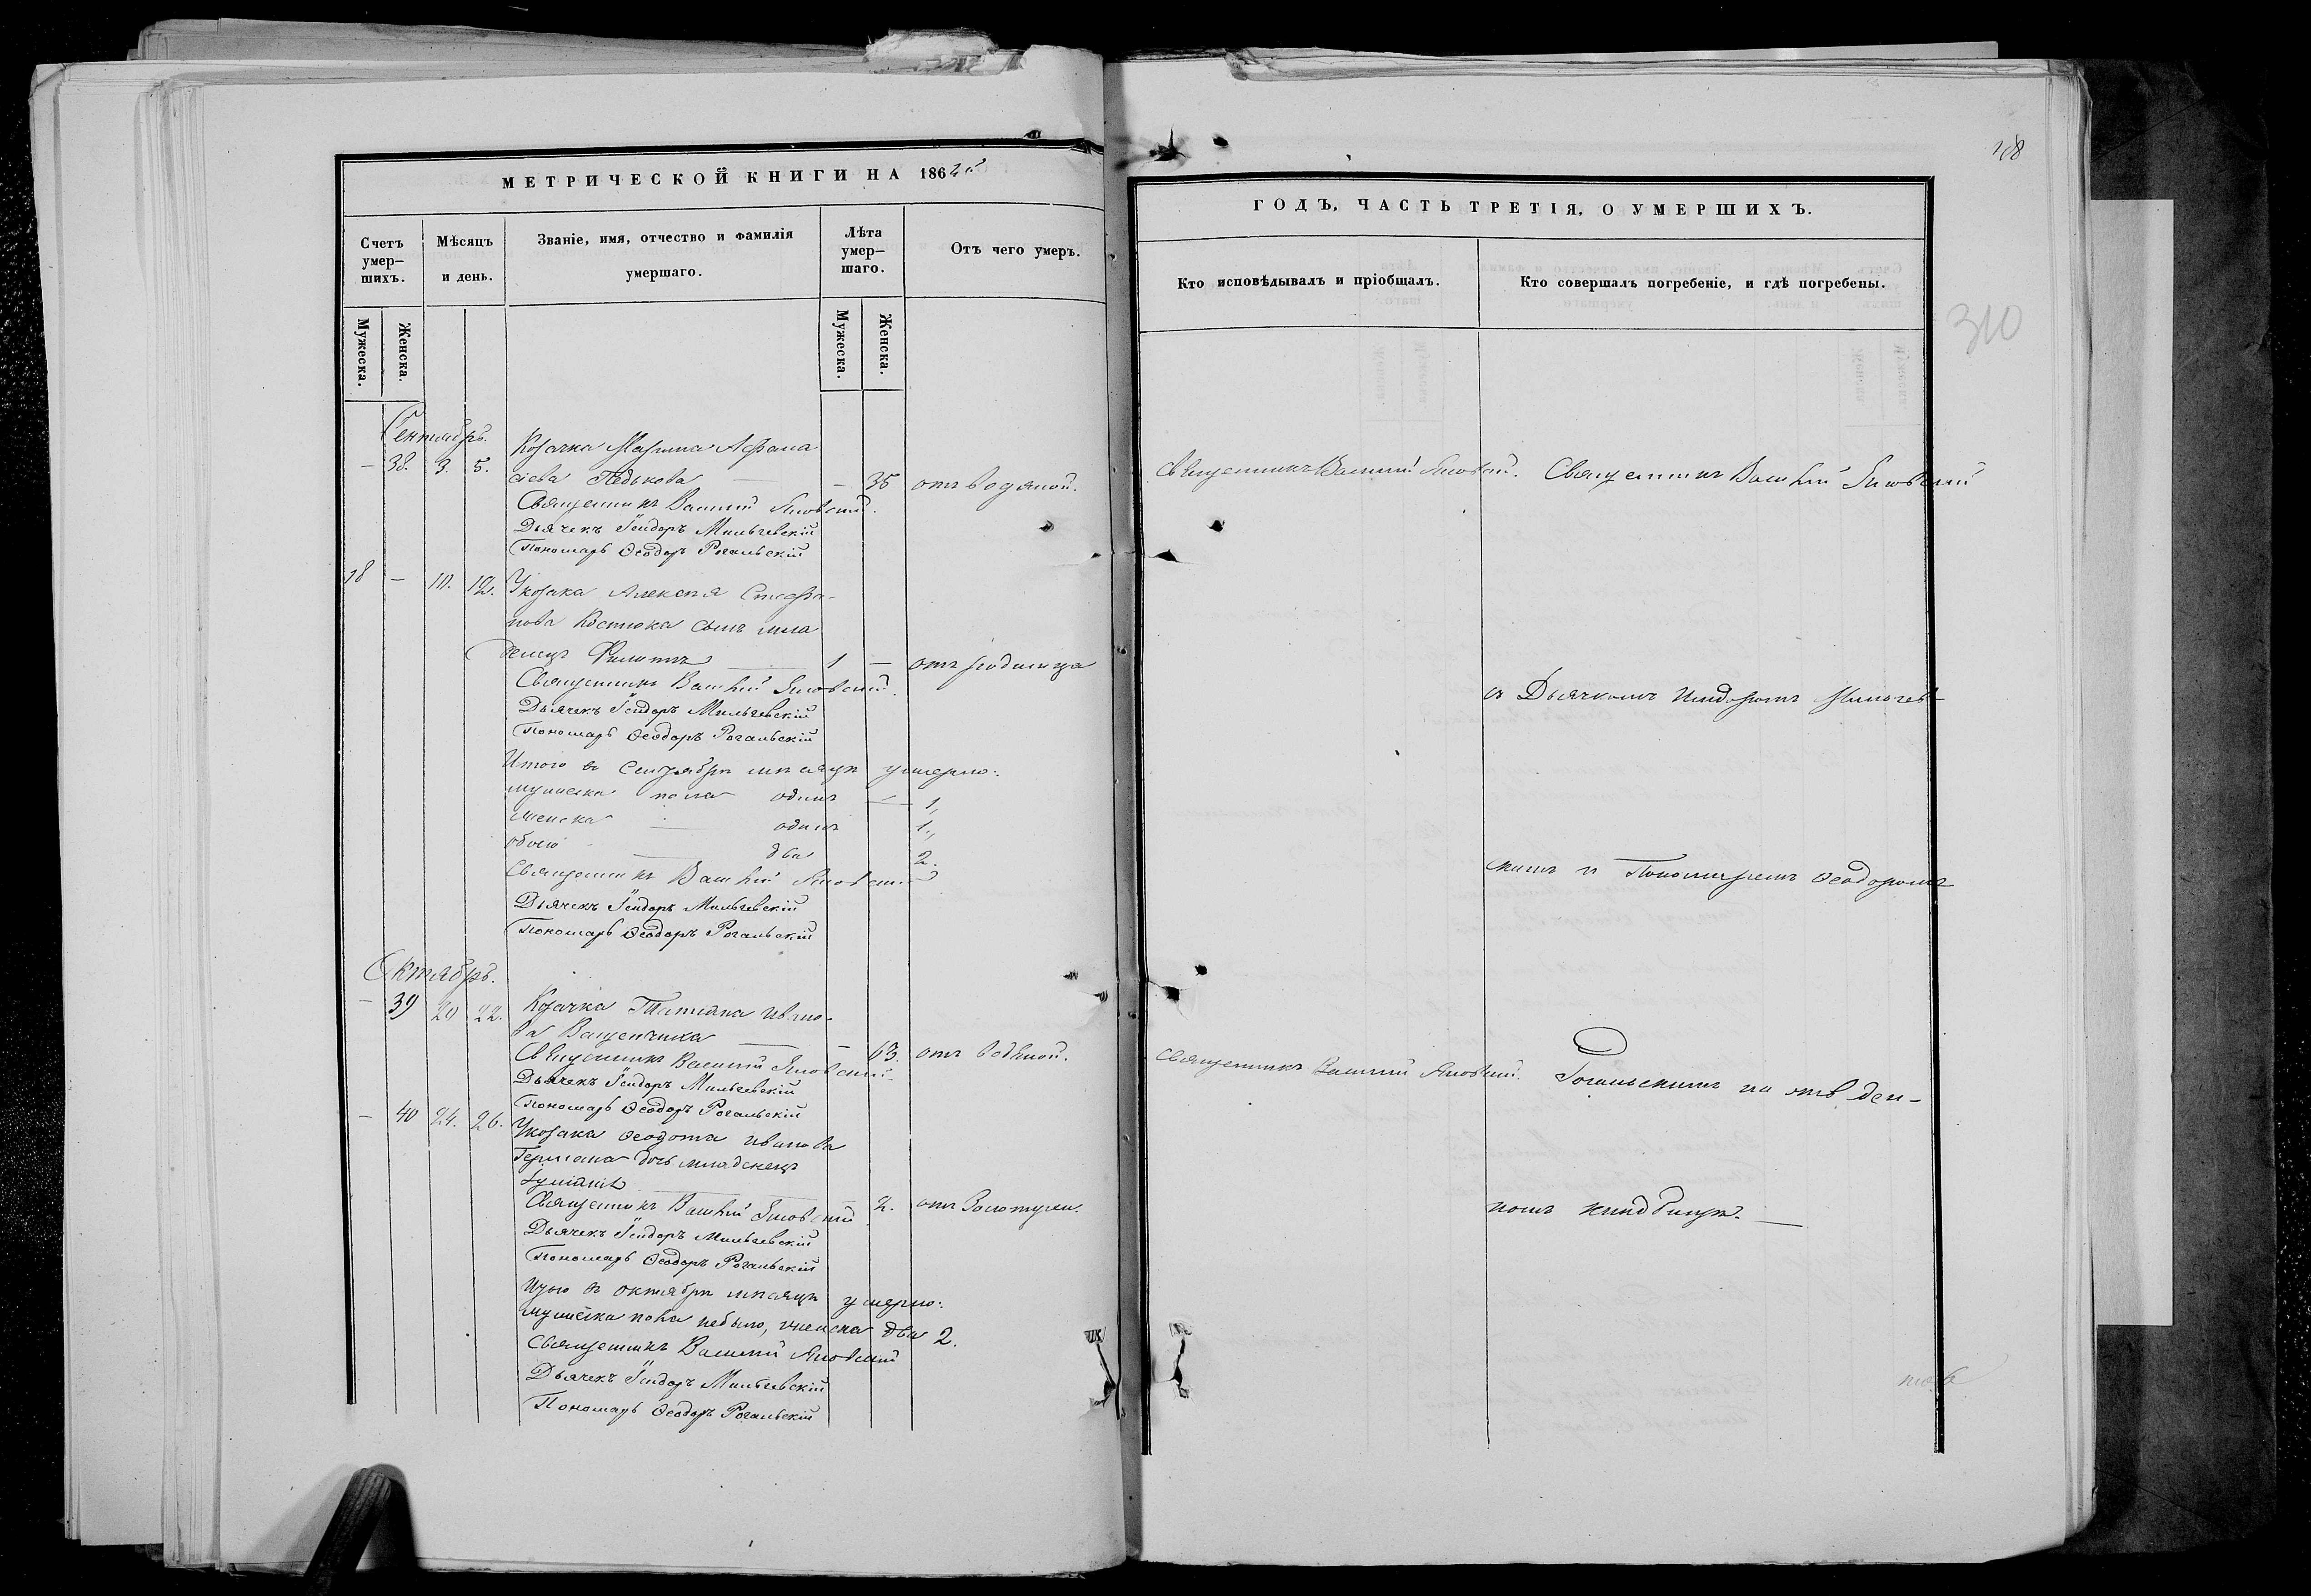 МЕТРИЧЕСКОЙ КНИГИ НА 1862й
Счетъ умер-шихъ.
Мѣсяцъ и день.
Званіе, имя, отчество и фамилія умершаго.
Лѣта умер-шаго.
Отъ чего умеръ.
Мужеска.
Женска.
Мужеска.
Женска.
Сентябрь.
Козачка Марина Афана
— 38. 3. 5. сіева Педькова — — 35 отъ водяной.
Священникъ Василій Яновскій.
Дьячекъ Ісидоръ Мильчевскій
Пономарь Ѳеодоръ Рогальскій
18 — 10. 12. У козака Алексѣя Стефа-
нова Костюка сынъ мла
денецъ Филиппъ — 1 — отъ родимца
Священникъ Василій Яновскій.
Дьячекъ Ісидоръ Мильчевскій
Пономарь Ѳеодоръ Рогальскій
Итого въ Сентябрѣ мѣсяцѣ умерло:
мужеска пола одинъ — 1,
женска — одинъ 1.,
обоего — два 2.
Священникъ Василій Яновскій
Дьячекъ Ісидоръ Мильчевскій
Пономарь Ѳеодоръ Рогальскій
Октябрь.
— 39 20 22. Козачка Татіана Ивано-
ва Ващенчика — — 63. отъ водяной.
Священникъ Василій Яновскій.
Дьячекъ Ісидоръ Мильчевскій
Пономарь Ѳеодоръ Рогальскій
— 40 24. 26. У козака Ѳеодота Иванова
Германа дочь младенецъ
Іуліанія — — 2. отъ Золотухи.
Священникъ Василій Яновскій
Дьячекъ Ісидоръ Мильчевскій
Пономарь Ѳеодоръ Рогальскій
Итого въ октябрѣ мѣсяцѣ умерло:
мужеска пола небыло, женска два 2.
Священникъ Василій Яновскій
Дьячекъ Ісидоръ Мильчевскій
Пономарь Ѳеодоръ Рогальскій
310
ГОДЪ, ЧАСТЬ ТРЕТІЯ, О УМЕРШИХЪ.
Кто исповѣдывалъ и пріобщалъ.
Кто совершалъ погребеніе, и гдѣ погребены.
Священникъ Василій Яновскій.
Священникъ Василій Яновскій
съ Дьячкомъ Исидоромъ Мильчев-
скимъ и Пономаремъ Ѳеодоромъ
Священникъ Василій Яновскій.
Рогальскимъ на отведен-
номъ кладбищѣ. —